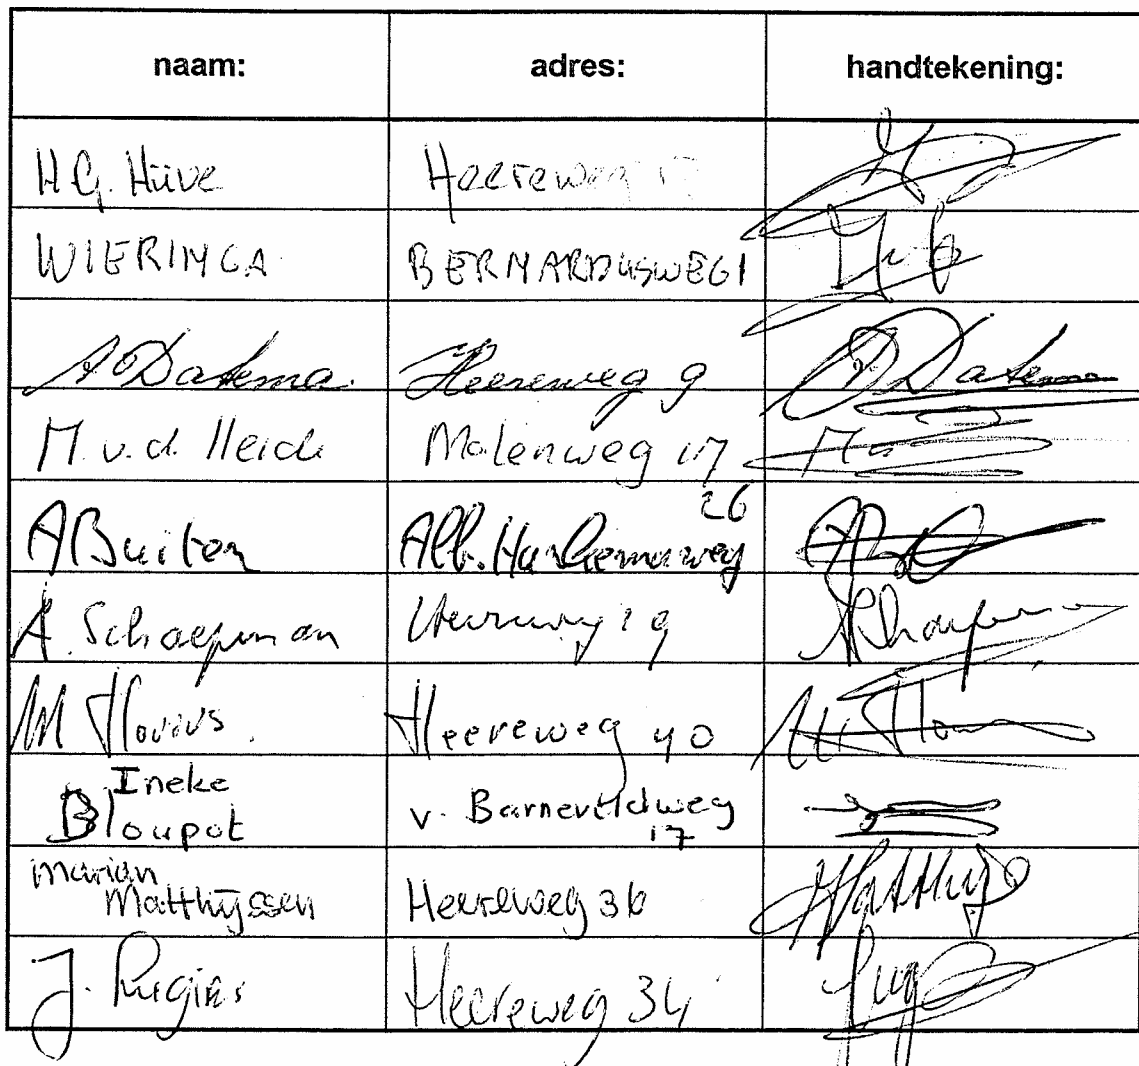 naam: adres: handtekening:
H.G. Hüve Heereweg
WIERINGA BERNARDUSWEG 1
A Datema. Heereweg 9 Datema
M. v.d. Heide Molenweg 17
26
A Buiten Alb. Harkemaweg
A. Schaepman 19
M Hovius. Heereweg 40
Ineke
Bloupot v. Barneveldweg
17
Marian
Matthijssen Heereweg 36 Matthijs
J. Heereweg 34